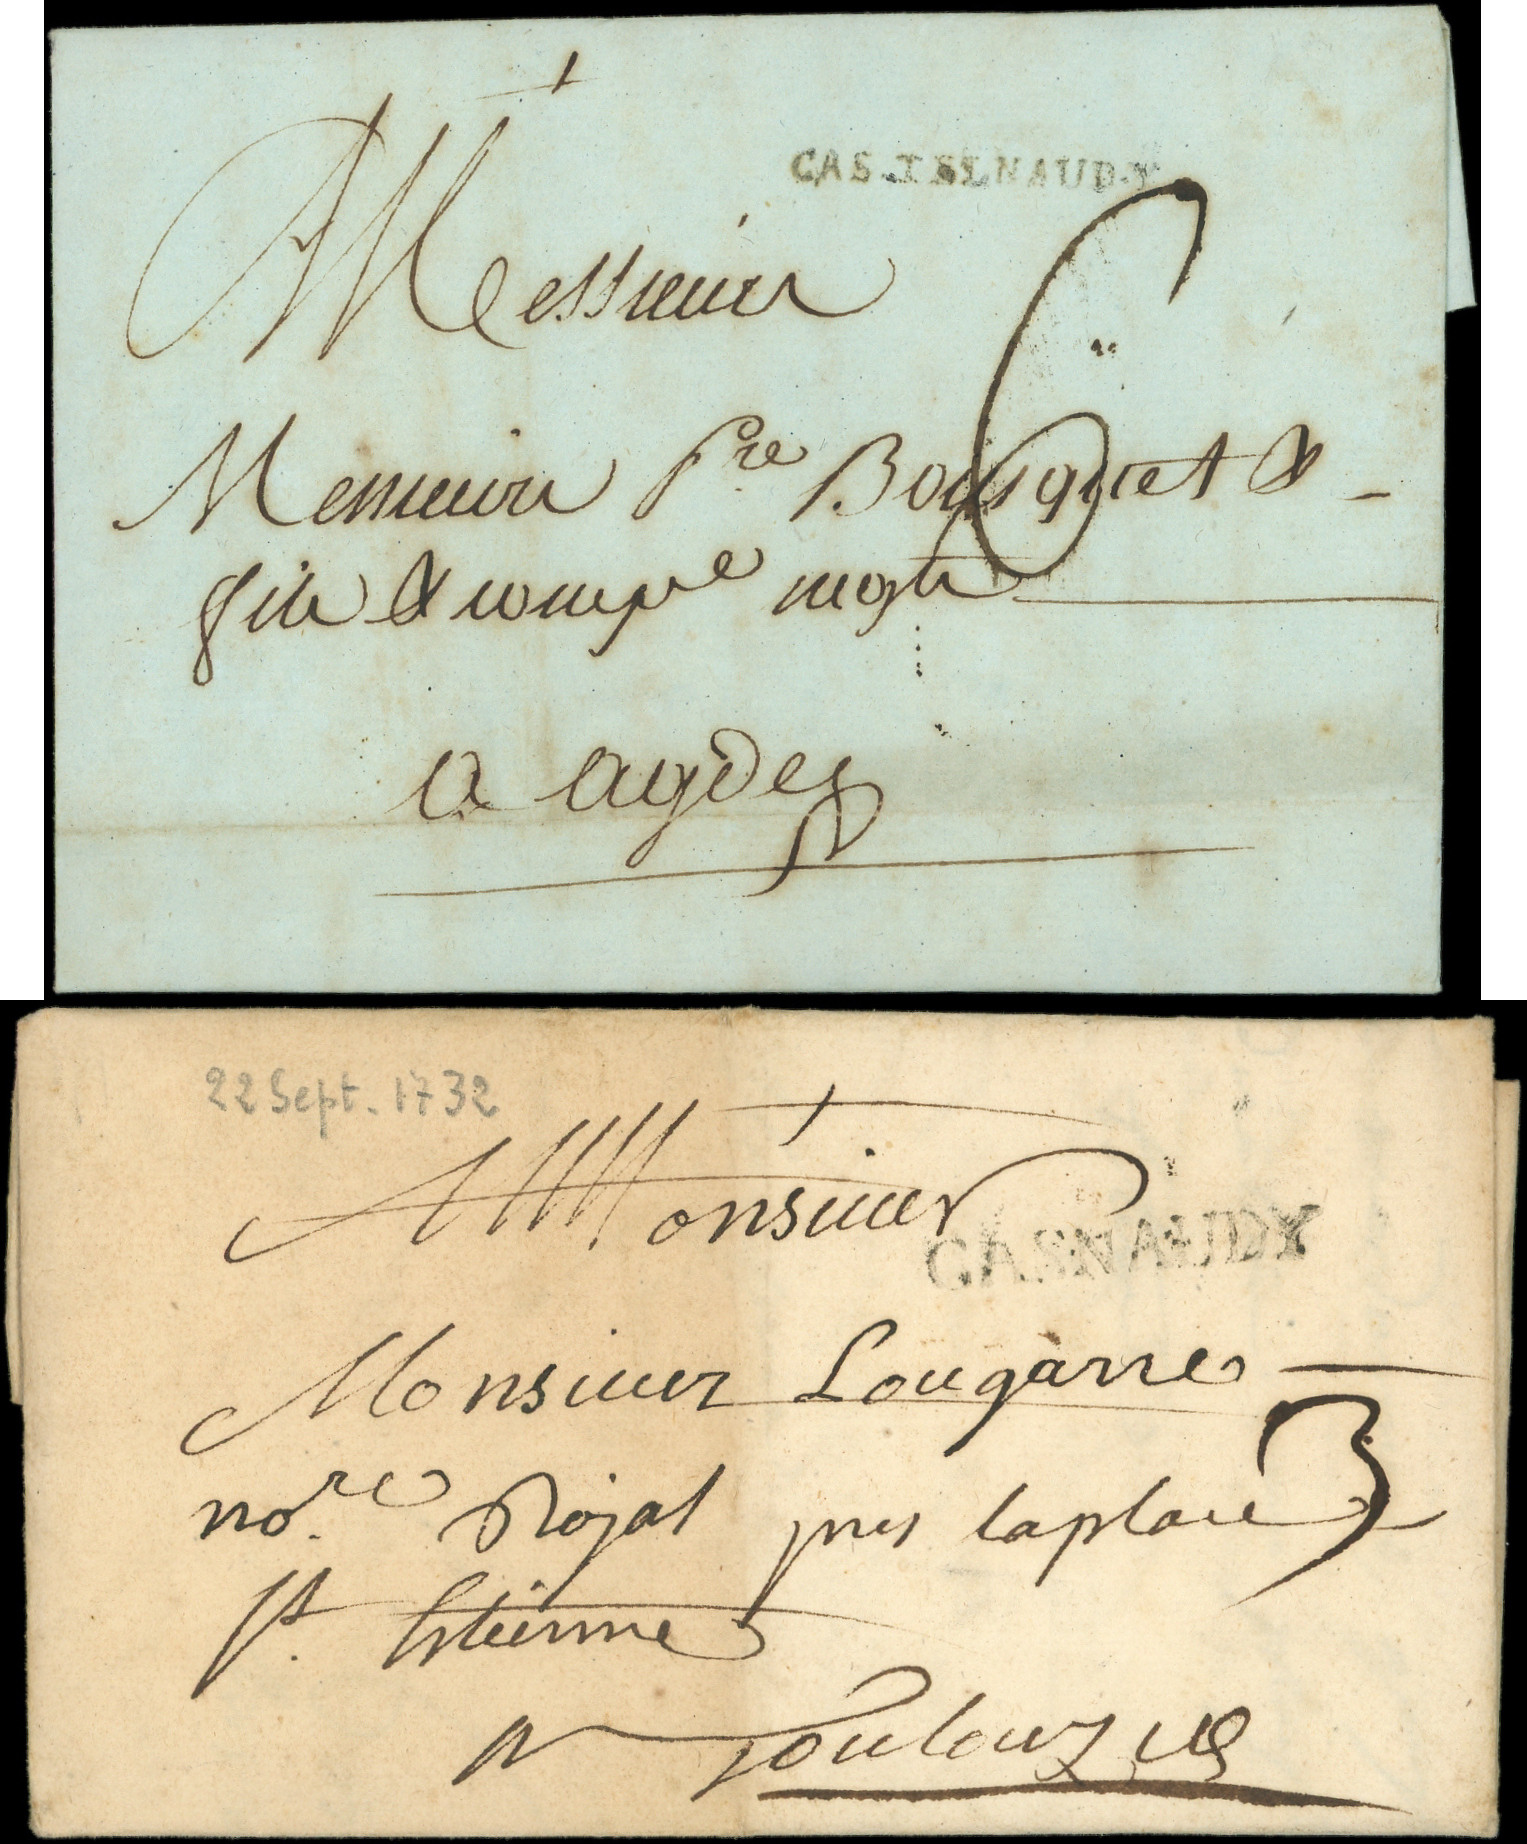 CASTELNAUDY
Messieurs
6
Messieurs Pre Bousquet &
fils & compe negts
a agde
22 Sept. 1732
Monsieur
CASNAUDY
Monsieur Lougarre
3
nore Royal pres la place
St. Estienne
A Toulouze